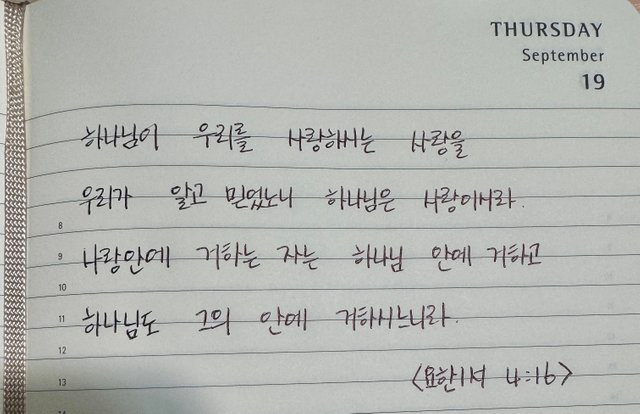 THURSDAY
September
19
하나님이 우리를 사랑하시는 사랑을
우리가 알고 믿었노니 하나님은 사랑이시라.
8
9 사랑안에 거하는 자는 하나님 안에 거하고
10
11 하나님도 그의 안에 거하시느니라.
12
13 <요한1서 4:16>